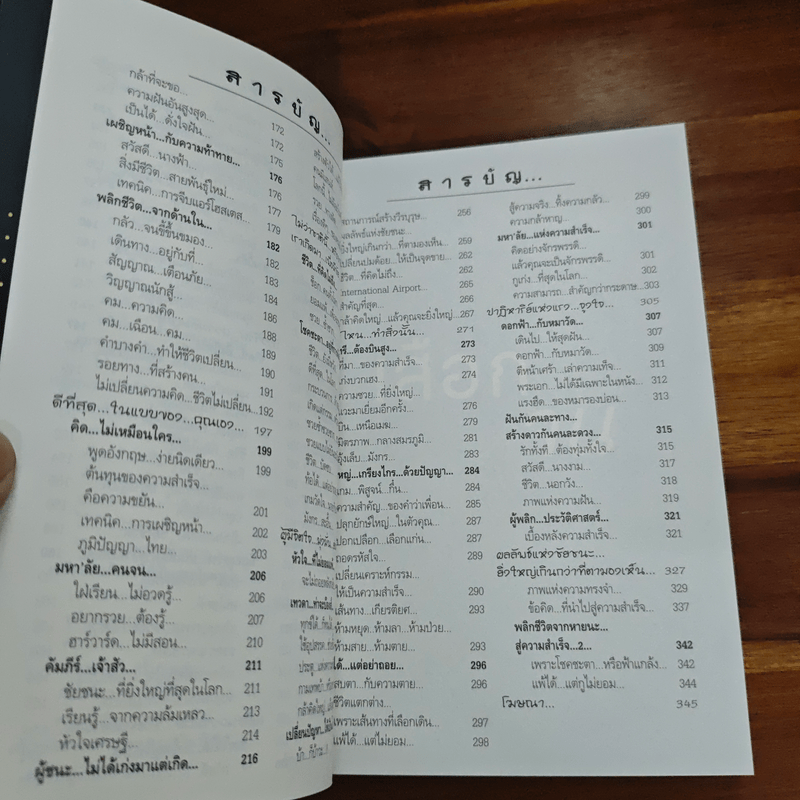 สารบัญ...
กล้าที่จะขอ...
ความฝันอันสูงสุด... 172
เป็นได้...ดั่งใจฝัน... 172
เผชิญหน้า...กับความท้าทาย... 175
สวัสดี...นางฟ้า... 176
สิ่งมีชีวิต...สายพันธุ์ใหม่... 176
เทคนิค...การจีบแอร์โฮสเตส 177
พลิกชีวิต...จากด้านใน... 179
กลัว...จนขี้ขึ้นขมอง... 182
เดินทาง...อยู่กับที่... 182
สัญญาณ...เตือนภัย... 183
วิญญาณนักสู้... 184
คม...ความคิด... 186
คม...เฉือน...คม... 188
คำบางคำ...ทำให้ชีวิตเปลี่ยน... 189
รอยทาง...ที่สร้างคน... 190
ไม่เปลี่ยนความคิด...ชีวิตไม่เปลี่ยน... 191
192
ดีที่สุด...ในแบบของ...คุณเอง... 197
คิด...ไม่เหมือนใคร... 199
พูดอังกฤษ...ง่ายนิดเดียว... 199
ต้นทุนของความสำเร็จ...
คือความขยัน... 201
เทคนิค...การเผชิญหน้า... 202
ภูมิปัญญา...ไทย... 203
มหา'ลัย...คนจน... 206
ใฝ่เรียน...ไม่อวดรู้... 206
อยากรวย...ต้องรู้... 207
ฮาร์วาร์ด...ไม่มีสอน... 210
คัมภีร์...เจ้าสัว... 211
ชัยชนะ...ที่ยิ่งใหญ่ที่สุดในโลก... 211
เรียนรู้...จากความล้มเหลว 213
หัวใจเศรษฐี... 214
ผู้ชนะ...ไม่ได้เก่งมาแต่เกิด... 216
สารบัญ...
สถานการณ์สร้างวีรบุรุษ... 256
ผลลัพธ์แห่งชัยชนะ...
ยิ่งใหญ่เกินกว่า...ที่ตามองเห็น... 259
เปลี่ยนปมด้อย...ให้เป็นจุดขาย... 262
ชีวิต...ที่คิดไม่ถึง 262
International Airport... 265
สำคัญที่สุด... 266
กล้าคิดใหญ่...แล้วคุณจะยิ่งใหญ่ 267
ไหน...ทำสิ่งนั้น... 271
ต้องบินสูง... 273
ที่มา...ของความสำเร็จ... 273
เก่งบวกเฮง... 274
ความซวย...ที่ยิ่งใหญ่... 274
แวะมาเยี่ยมอีกครั้ง... 276
บิน...เหนือเมฆ 279
มิตรภาพ...กลางสมรภูมิ... 281
อุ้งเล็บ...มังกร... 283
เกรียงไกร...ด้วยปัญญา... 284
เกม...พิสูจน์...กึ๋น... 284
ความสำคัญ...ของคำว่าเพื่อน... 285
ปลุกยักษ์ใหญ่...ในตัวคุณ... 287
ปอกเปลือก...เลือกแก่น... 287
ถอดรหัสใจ... 289
เปลี่ยนเคราะห์กรรม...
ให้เป็นความสำเร็จ 290
เส้นทาง...เกียรติยศ... 293
ห้ามหยุด...ห้ามลา...ห้ามป่วย...
ห้ามสาย...ห้ามตาย... 293
ได้...แต่อย่าถอย... 296
สบตา...กับความตาย 296
ชีวิตแตกต่าง...
เพราะเส้นทางที่เลือกเดิน... 297
แพ้ได้...แต่ไม่ยอม... 298
สู้ความจริง...ทิ้งความกลัว... 299
ความกล้าหาญ... 300
มหา'ลัย...แห่งความสำเร็จ... 301
คิดอย่างจักรพรรดิ...
แล้วคุณจะเป็นจักรพรรดิ... 301
กูเก่ง...ที่สุดในโลก... 302
ความสามารถ...สำคัญกว่ากระดาษ...303
ปาฏิหาริย์แห่งแรง...จูงใจ... 305
ดอกฟ้า...กับหมาวัด... 307
เดินไป...ให้สุดฝัน... 307
ดอกฟ้า...กับหมาวัด... 309
ตีหน้าเศร้า...เล่าความเท็จ... 311
พระเอก...ไม่ได้มีเฉพาะในหนัง... 312
แรงฮึด...ของหมารองบ่อน... 313
ฝันกันคนละทาง...
สร้างดาวกันคนละดวง... 315
รักทั้งที...ต้องทุ่มทั้งใจ... 315
สวัสดี...นางงาม... 317
ชีวิต...นอกวัง... 318
ภาพแห่งความฝัน... 319
ผู้พลิก...ประวัติศาสตร์... 321
เบื้องหลังความสำเร็จ... 321
ผลลัพธ์แห่งชัยชนะ...
ยิ่งใหญ่เกินกว่าที่ตามองเห็น... 327
ภาพแห่งความทรงจำ... 329
ข้อคิด...ที่นำไปสู่ความสำเร็จ... 337
พลิกชีวิตจากหายนะ...
สู่ความสำเร็จ...2... 342
เพราะโชคชะตา...หรือฟ้าแกล้ง... 342
แพ้ได้...แต่กูไม่ยอม... 344
โฆษณา... 345